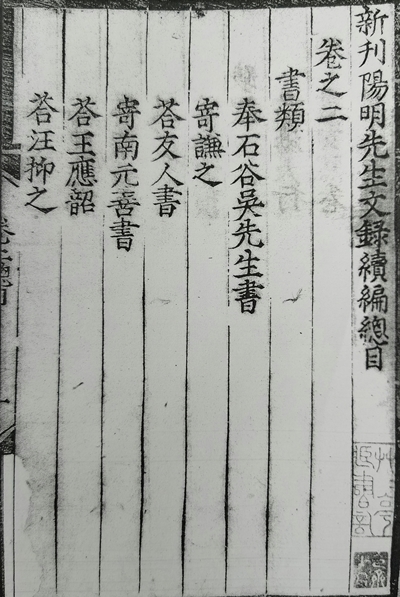 新刊陽明先生文錄續編總目
卷之二
書類
奉石谷吳先生書
寄謙之
荅友人書
寄南元善書
荅王應韶
荅汪抑之